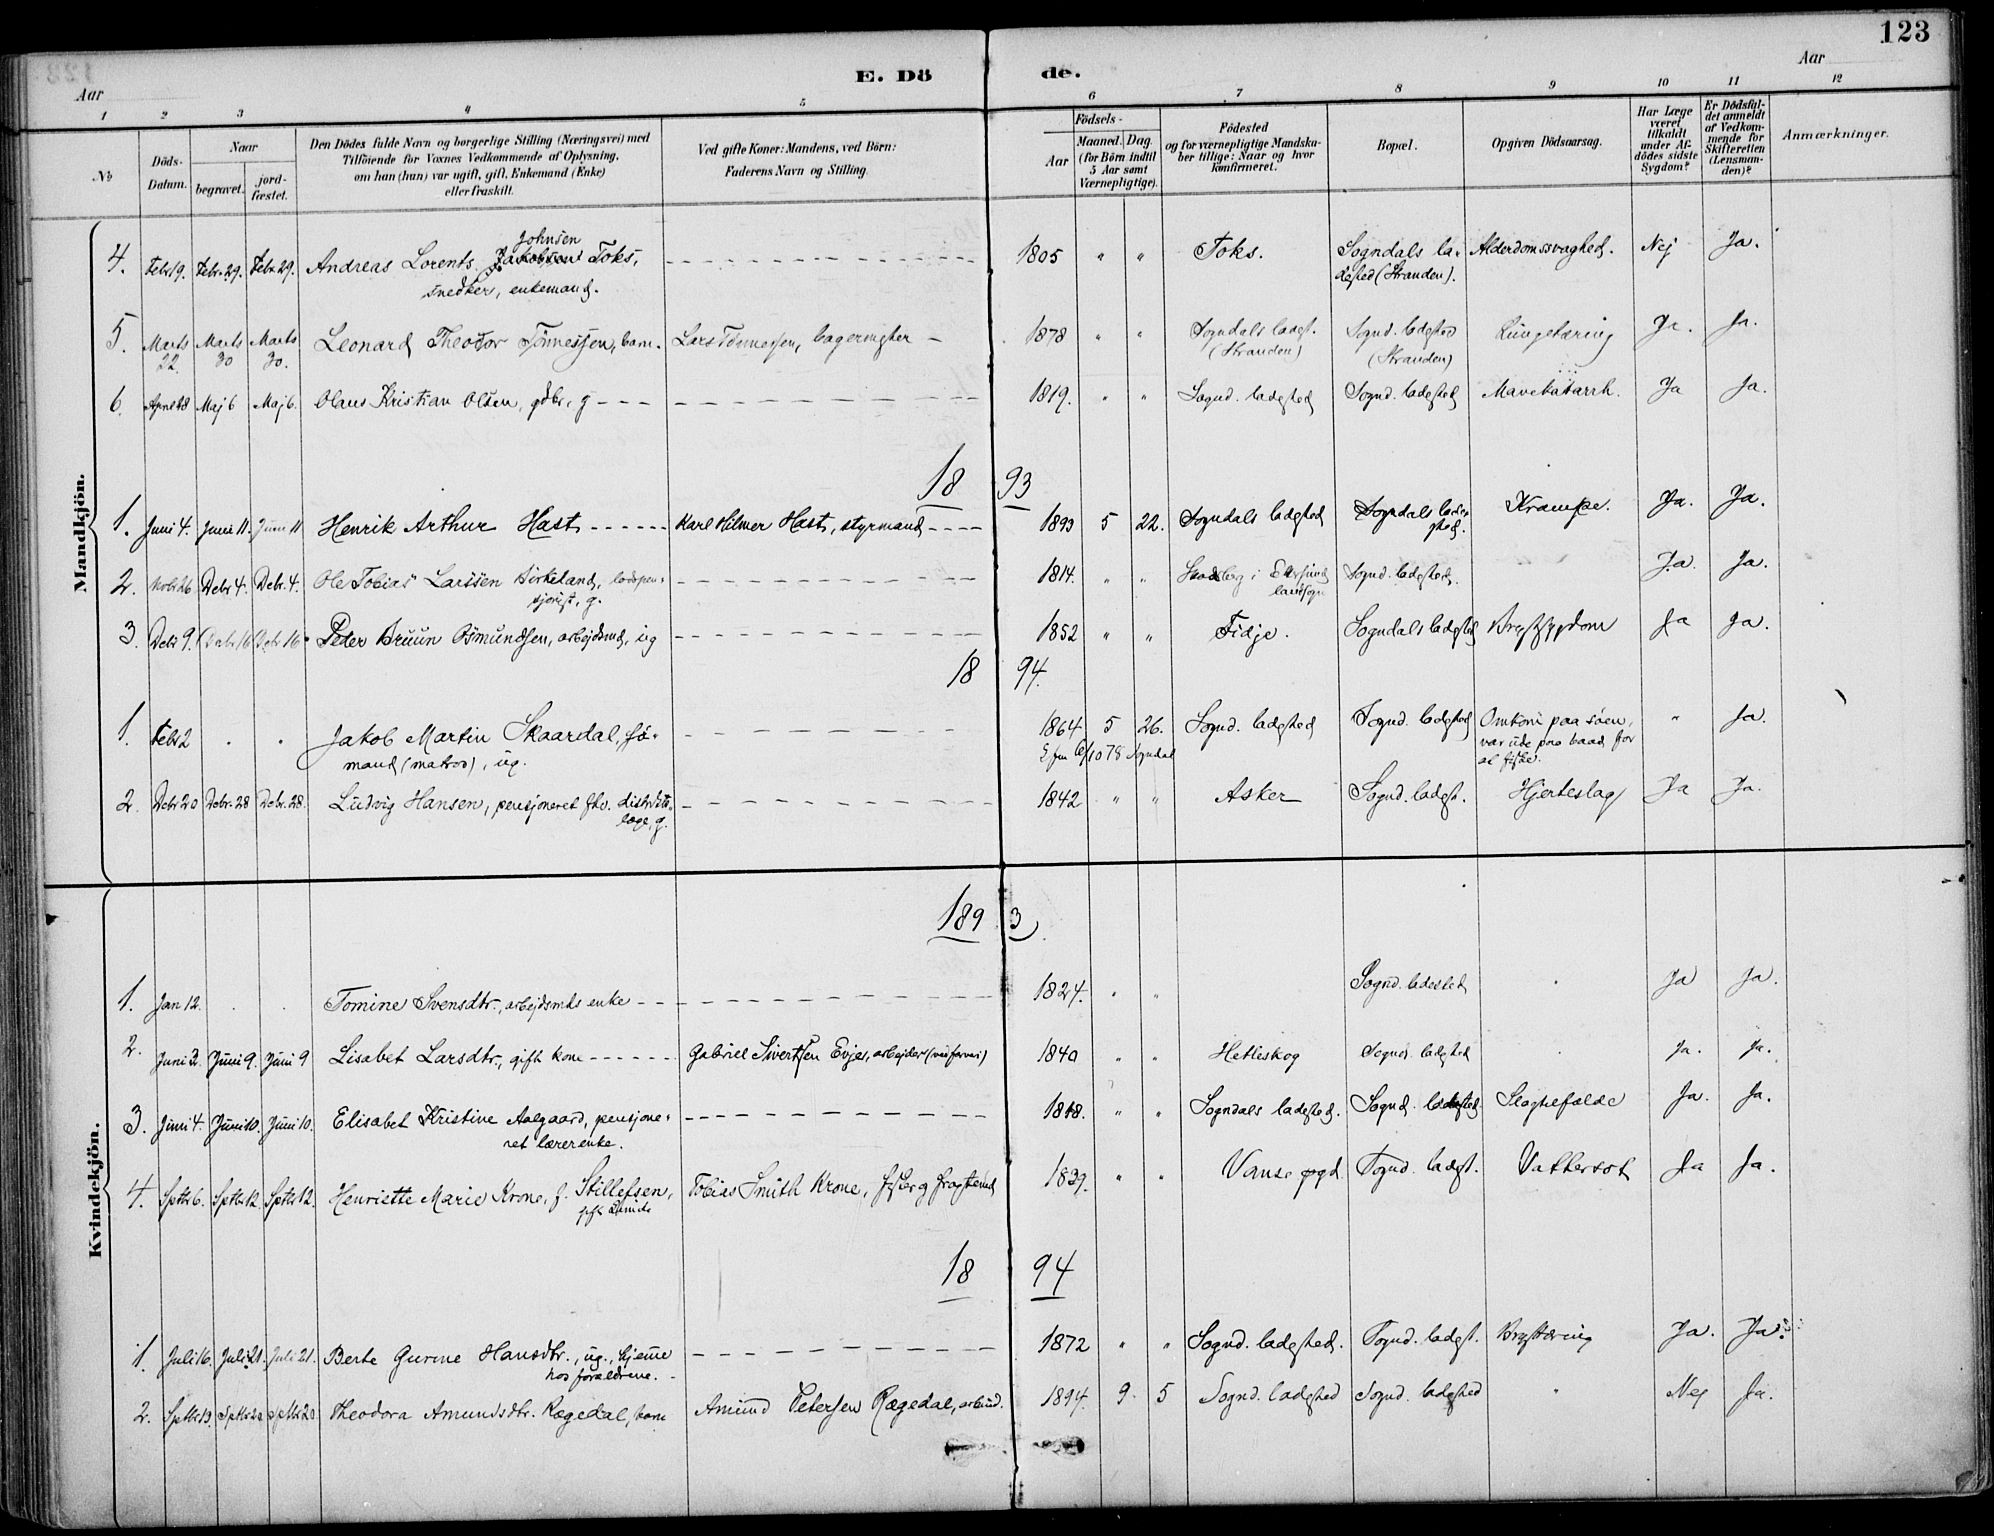 123
E. Dö de.
Aar Aar
1 2 3 4 5 6 7 8 9 10 11 12
No
Döds-Datum.
Naar
begravet.
jord-fæstet.
Den Dödes fulde Navn og borgerlige Stilling (Næringsvei) med
Tilföiende for Voxnes Vedkommende af Oplysning,
om han (hun) var ugift, gift, Enkemand (Enke)
eller fraskilt.
Ved gifte Koner: Mandens, ved Börn:
Faderens Navn og Stilling.
Födsels-
Aar
Maaned. Dag.
(for Börn indtil
5 Aar samt
Værnepligtige).
Födested
og for værnepligtige Mandska-
ber tillige: Naar og hvor
konfirmeret.
Bopæl.
Opgiven Dödsaarsag.
Har Læge
været
tilkaldt
under Af-
dödes sidste
Sygdom?
Er Dödsfal-
det anmeldt
af Vedkom-
mende for
Skifteretten
(Lensman-
den)?
Anmærkninger.
Mandkjön.
Johnsen
4. Febr 19. Febr. 29. Febr. 29. Andreas Lorents Jakobsen Toks, 1805 " " Toks. Sogndals la- Alderdomssvaghed. Nej Ja.
snedker, enkemand. dested (Stranden).
5. Marts Marts Marts Leonard Theodor Tönnessen, barn. Lars Tönnessen, bagermester 1878 " " Sogndals ladest. Sognd. ladested Lungetæring Ja. Ja.
22. 30 30. (Stranden) (Stranden)
6. April 28 Maj 6 Maj 6. Olaus Kristian Olsen, gdbr. g 1819. " " Sognd. ladested Sognd. ladested Mavekatarrh. Ja Ja.
18 93
1. Juni 4. Juni 11. Juni 11 Henrik Arthur Hast Karl Hilmer Hast, styrmand 1893 5 22. Sogndals ladested Sogndals lade- Krampe. Ja. Ja.
sted.
2. Nobr 26 Debr 4. Debr. 4. Ole Tobias Larssen Birkeland, lodspen- 1814. " " i Ekersund Sognd. ladested. Ja. Ja.
sjonist, g. landsogn
3. Debr 9. Debr 16 Debr 16 Peder Bruun Osmundsen, arbejdsmd, ug 1852 " " Fidje. Sogndals ladested Brystsygdom Ja Ja.
18 94.
1. Febr 2 . . Jakob Martin Skaardal, sö- 1864 5 26. Sognd. ladested Sognd. ladested Omkom paa söen, " Ja.
mand (matros), ug. 6/10 78 Sogndal var ude paa baad for
at fiske.
2. Debr 20 Debr. 28 Debr. 28. Ludvig Hansen, pensjoneret fhv. distrikts- 1842 " " Asker Sognd. ladest. Hjerteslag Ja Ja.
læge, g.
Kvindekjön.
189 3
1. Jan 12. . . Tomine Svensdtr., arbejdsmds enke 1824. " " Sognd. ladested " Ja Ja.
2. Juni 2. Juni 9. Juni 9 Lisabet Larsdtr., gift kone Gabriel Sivertsen Evjes, arbejder 1840 " " Hetleskog Sognd. ladested . Ja. Ja.
3. Juni 4. Juni 10. Juni 10. Elisabet Kristine Aalgaard, pensjone- 1818. " " Sogndals ladested. Sognd. ladested Slagtilfælde Ja. Ja.
ret lærerenke.
4. Septbr 6. Septbr 12 Septbr 12. Henriette Marie Krone, f. Stillefsen, Tobias Smith Krone, 1839. " " Vanse pgd. Sognd. ladest. Vattersot Ja Ja.
gift
18 94
1. Juli 16. Juli 21. Juli 21. Berte Gurine Hansdtr., ug., hjemme 1872 " " Sognd. ladested. Sognd. ladest. Brysttæring Ja. Ja.
hos forældrene.
2. Septbr 13. Septbr 20 Septbr 20. Theodora Amundsdtr. Rægedal, barn Amund Petersen Rægedal, arbmd. 1894. 9. 5 Sognd. ladested Sognd. ladested " Nej Ja.